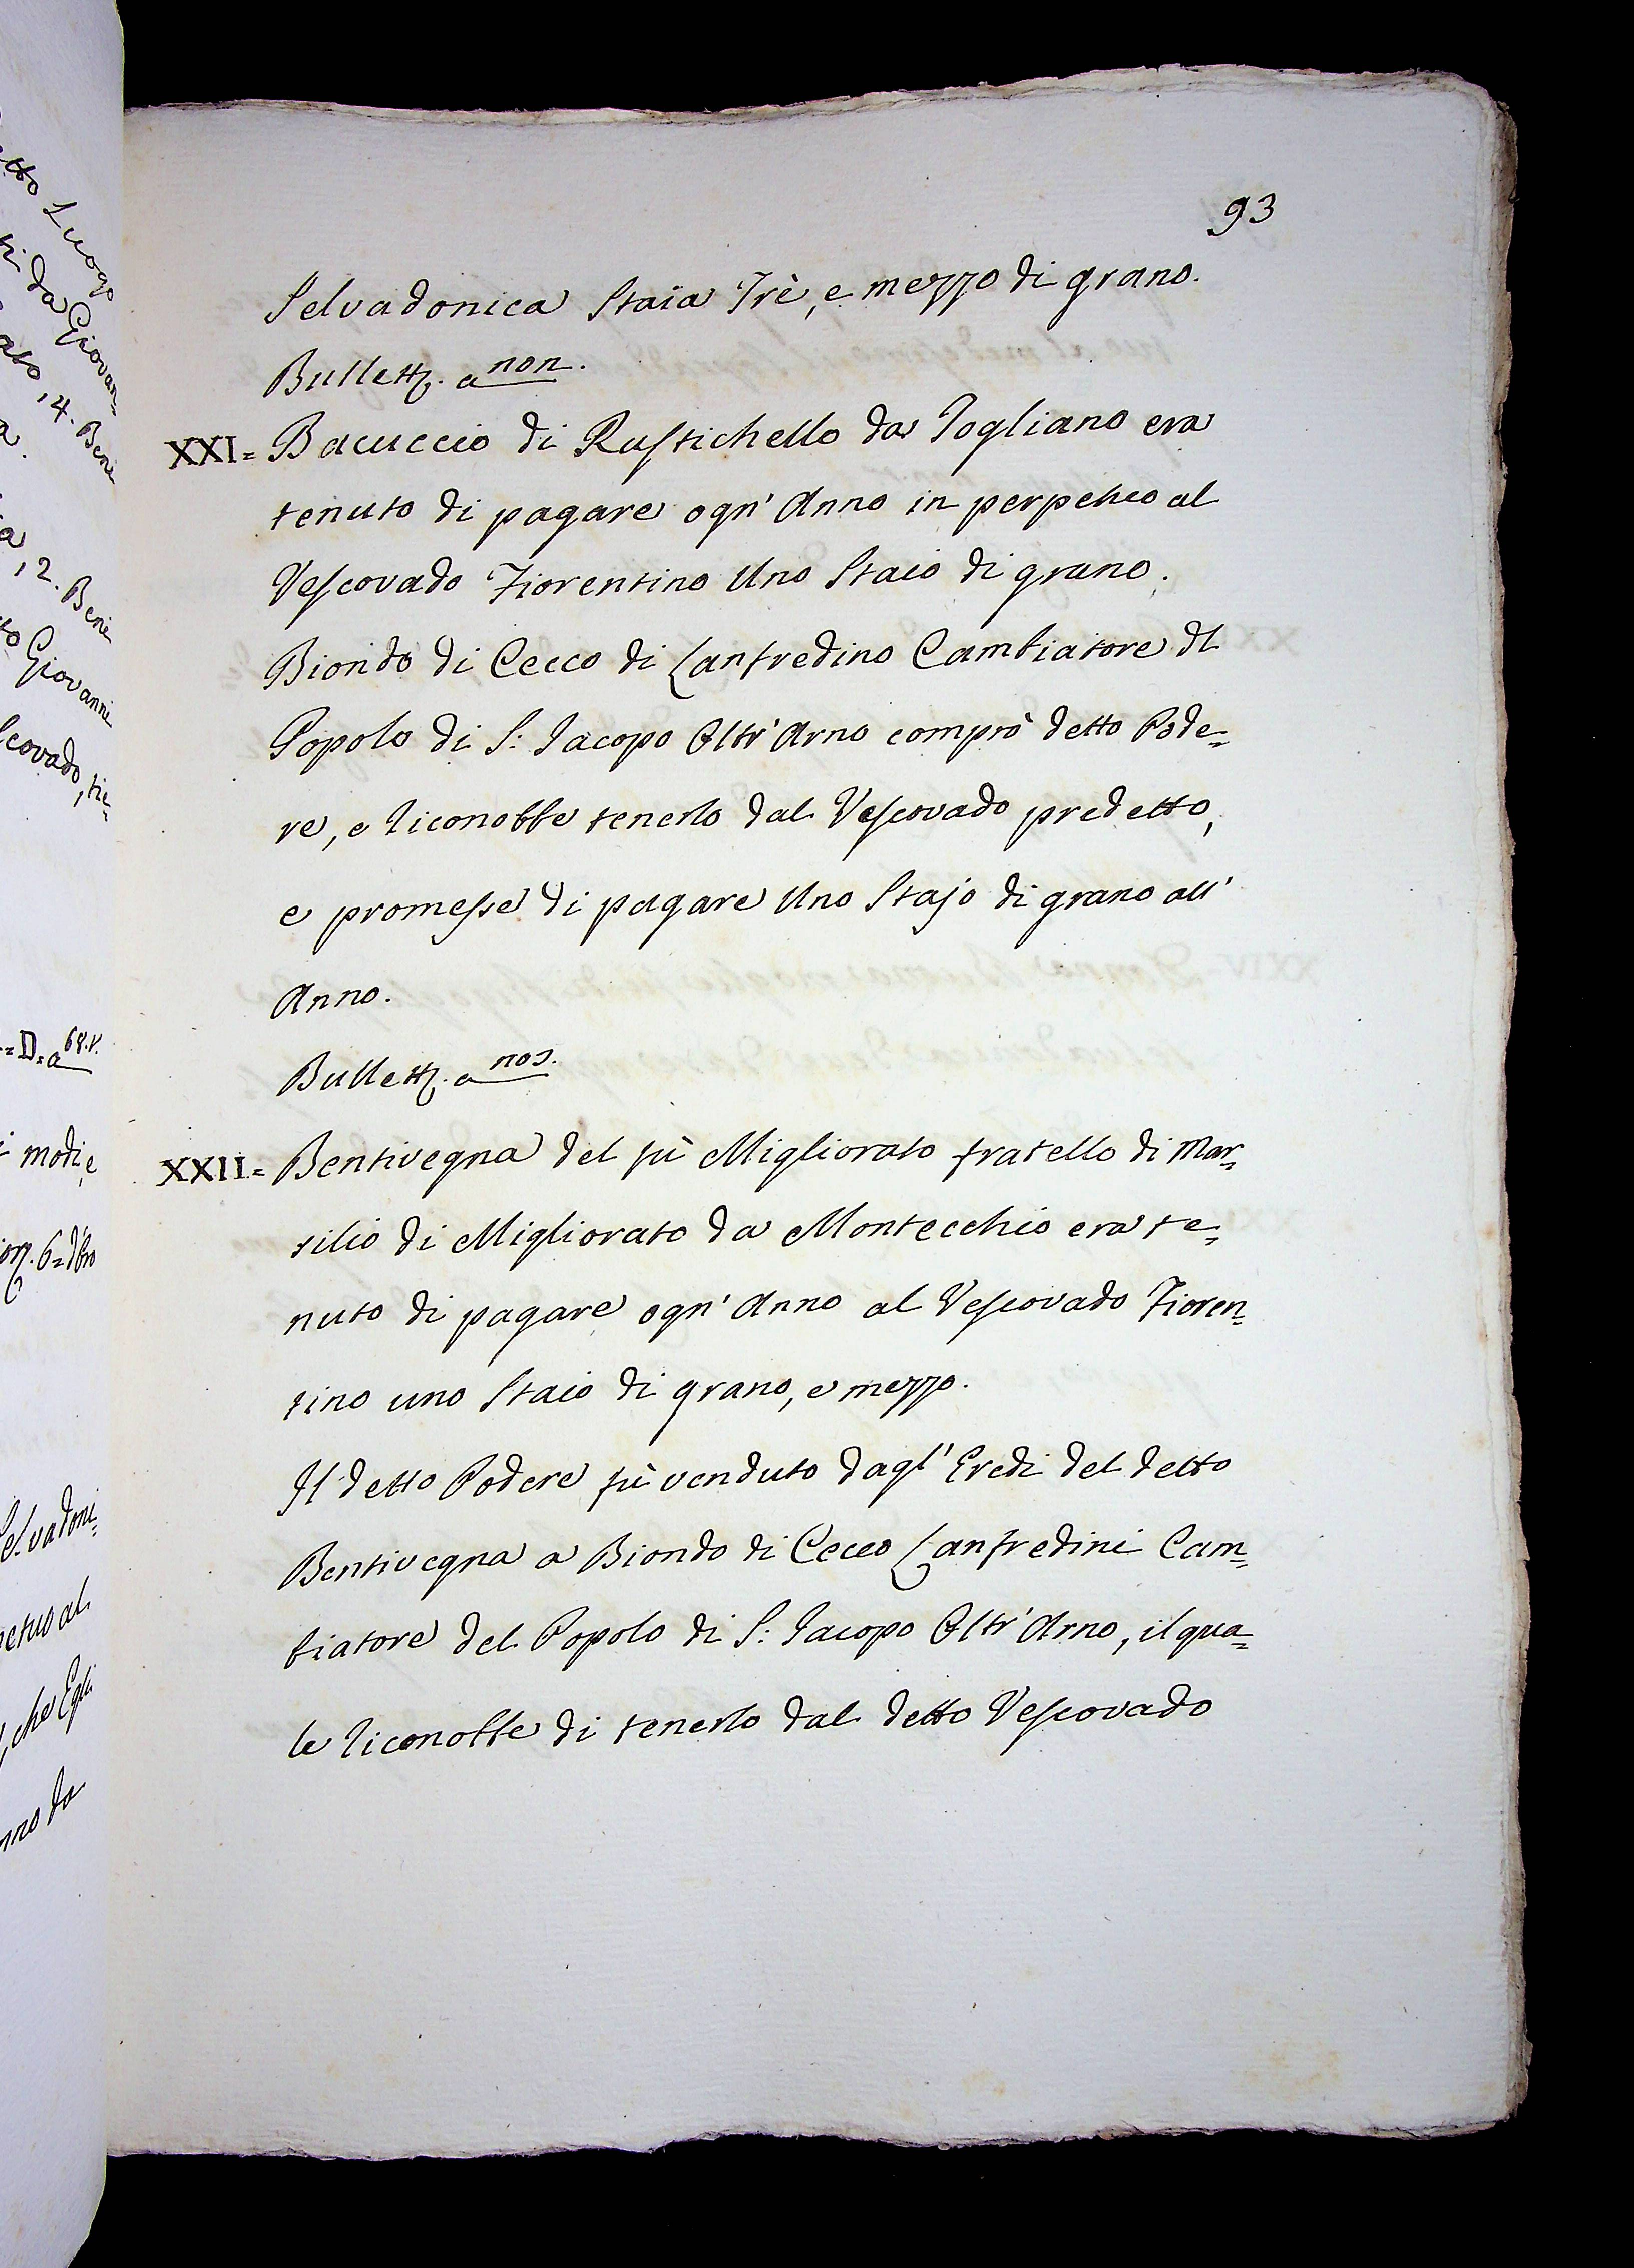 93
Selvadonica Staia Trè, e mezzo di grano.
Bullett. a non.
XXI= Bacuccio di Rustichello da Pogliano era
tenuto di pagare ogn' Anno in perpetuo al
Vescovado Fiorentino Uno Staio di grano.
Biondo di Cecco di Lanfredino Cambiatore dl
Popolo di S: Iacopo Oltr' Arno comprò detto Pode=
re, e riconobbe tenerlo dal Vescovado predetto,
e promesse di pagare Uno Stajo di grano all'
Anno.
Bullett. a nos.
XXII= Bentivegna del fù Migliorato fratello di Mar=
silio di Migliorato da Montecchio era te=
nuto di pagare ogn' Anno al Vescovado Fioren=
tino uno Staio di grano, e mezzo.
Il detto Podere fù venduto dagl' Eredi del detto
Bentivegna a Biondo di Cecco Lanfredini Cam=
biatore del Popolo di S: Iacopo Oltr' Arno, il qua=
le riconobbe di tenerlo dal detto Vescovado